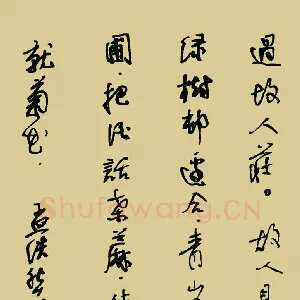 过故人莊。故人
绿树邨边合。青山
圃。把酒話桑麻。
就菊花。孟浩然
Shufawang.CN